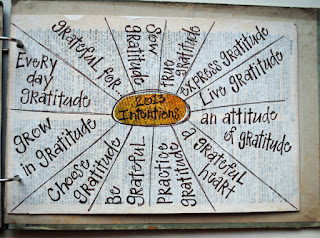 2013
Intentions
grateful for...
gratitude
true
gratitude
express gratitude
Live gratitude
an attitude
of gratitude
a grateful
heart
Practice
gratitude
Be
grateful
Choose
gratitude
grow
in gratitude
Every
day
gratitude